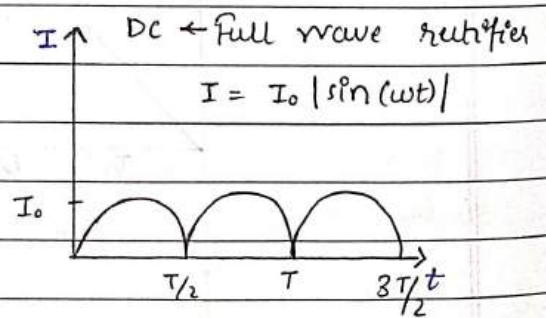 I DC ← Full wave rectifier
I = I₀ |sin(ωt)|
I₀
T/2 T 3T/2 t